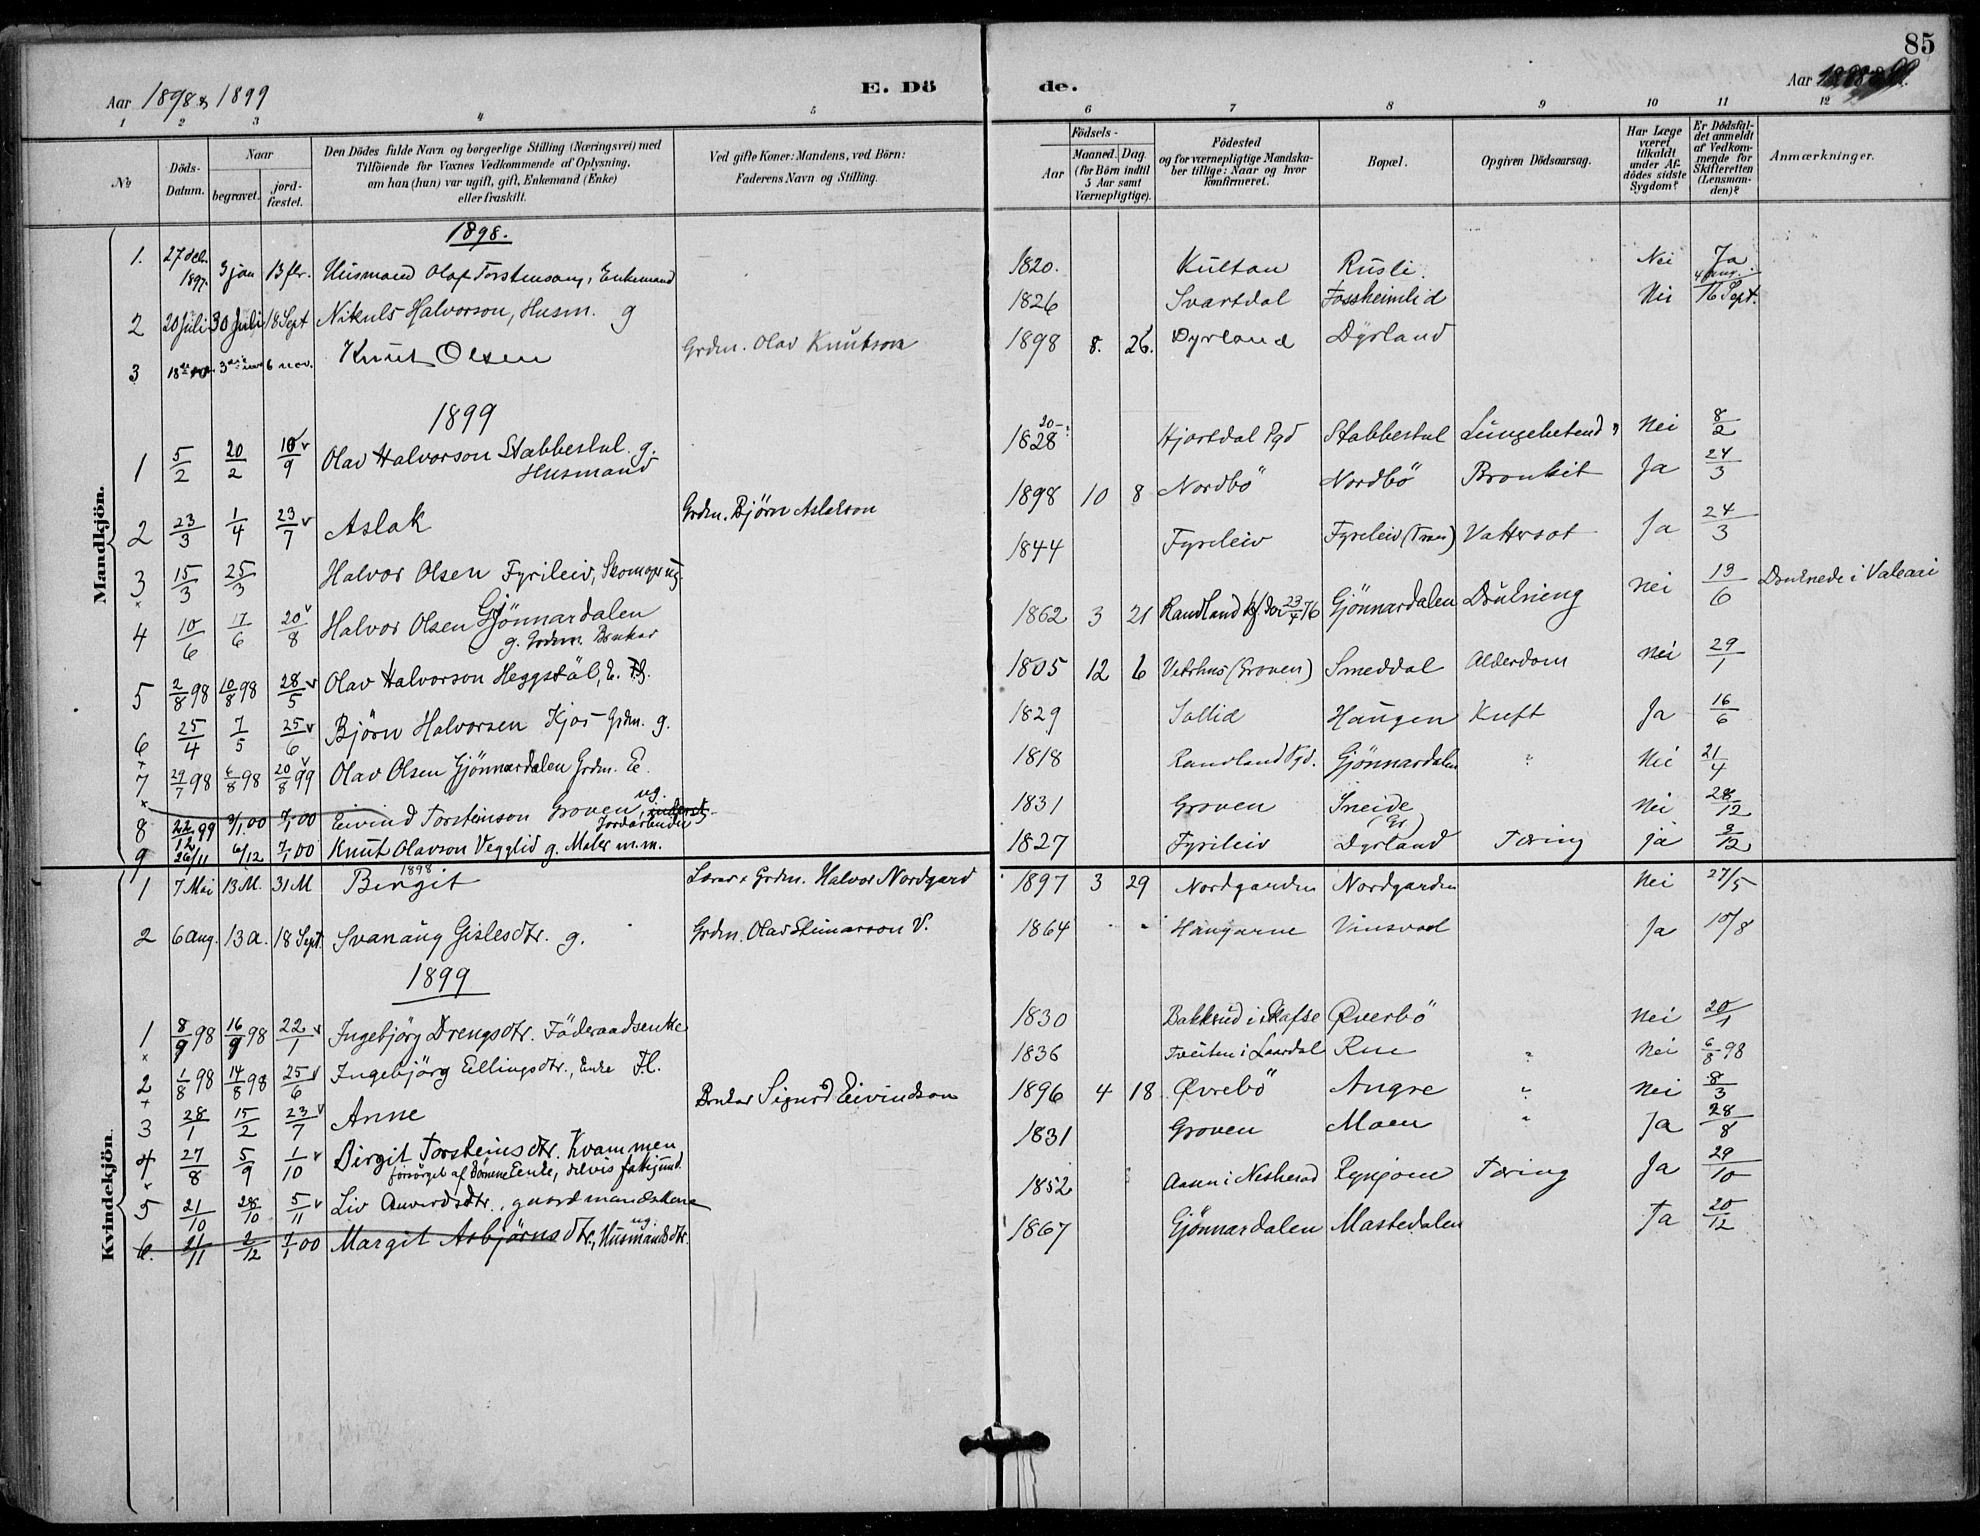 85
Aar 1898 & 1899
E. Dö
de.
Aar
1 2 3 4 5
6 7 8 9 10 11 12
No
Döds-Datum.
Naar
begravet.
jord-fæstet.
Den Dödes fulde Navn og borgerlige Stilling (Næringsvei) med
Tilföiende for Voxnes Vedkommende af Oplysning,
om han (hun) var ugift, gift, Enkemand (Enke)
eller fraskilt.
Ved gifte Koner: Mandens, ved Börn:
Faderens Navn og Stilling.
Födsels-
Aar
Maaned. Dag.
(for Börn indtil
5 Aar samt
Værnepligtige).
Födested
og for værnepligtige Mandska-
ber tillige: Naar og hvor
konfirmeret.
Bopæl.
Opgiven Dödsaarsag.
Har Læge
været
tilkaldt
under Af-
dödes sidste
Sygdom?
Er Dödsfal-
det anmeldt
af Vedkom-
mende for
Skifteretten
(Lensman-
den)?
Anmærkninger.
Mandkjön.
1898.
1. 27 dec. 1897. 3 jan 13 fbr. Husmand Olaf Torstensøn, Enkemand 1820. Kultan Rusli. Nei Ja
2 20 Juli 30 Juli 18 Sept Nikuls Halvorson, Husm. g 1826 Svartdal Fossheimlid Nei 4 aug. 16 Sept.
3 6 nov. Knut Olsen Grdm. Olav Knutson 1898 8. 26. Dyrland Dyrland
1899
1 5/2 20/2 10/9 v Olav Halvorson Stabbestul g. Husmand 1828 Hjartdal Pgd Stabbestul Nei 8/2
2 23/3 1/4 23/7 v Aslak Grdm. Björn Aslakson 1898 10 8 Nordbö Nordbö Bronkit Ja 24/3
3 15/3 25/3 Halvor Olsen Fyrileiv, ug. 1844 Fyrileiv Fyrileiv Vattersot Ja 24/3
4 10/6 17/6 20/8 v Halvor Olsen Gjönnardalen g. Grdm. Bruker 1862 3 21 Randland Gjönnardalen Drukning Nei 13/6 Druknede i
5 2/8 98 10/8 98 28/5 v Olav Halvorson Heggstöl, E. 1805 12 6 Vetrhus (Groven) Smeddal Alderdom Nei 29/1
6 25/4 7/5 25/6 v Björn Halvorsen Kjos Grdm. g. 1829 Sollid Haugen Kreft Ja 16/6
7 29/7 98 6/8 98 20/8 99 v Olav Olsen Gjönnardalen Grdm. E. 1818 Randland Pgd. Gjönnardalen " Nei 21/4
8 22/12 99 7/1 00 Eivind Torsteinson Groven, ug. Jordarbeider 1831 Groven Sneide (Gr) Nei 28/12
9 26/11 6/12 7/1 00 Knut Olavson Vegglid g. Maler m.m. 1827 Fyrileiv Dyrland Tæring ja 2/12
Kvindekjön.
1898
1 7 Mai 13 M. 31 M Birgit Lærer & Grdm. Halvor Nordgard 1897 3 29 Nordgarden Nordgarden Nei 27/5
2 6 aug. 13 a. 18 Sept. Svanaug Gislesdtr. g. Grdm. Olav Steinarson V. 1864 Haugarne Vinsvad Ja 10/8
1899
1 8/9 98 16/9 98 22/1 v Ingebjörg Drengsdtr. Föderaadsenke 1830 Bakkrud i Skafse Øverbö Nei 20/1
2 1/8 98 14/8 98 25/6 v Ingebjörg Ellingsdtr., Enke Fl. 1836 Tveiten i Laardal Rue " Nei 6/8 98
3 28/1 15/2 23/7 v Anne Bruker Sigurd Eivindson 1896 4 18 Øvrebö Angre " Nei 8/3
4 27/8 5/9 1/10 v Birgit Torsteinsdtr. Kvammen forsörget af Börnene Enke, delvis 1831 Groven Moen " Ja 28/8
5 21/10 28/10 5/11 v Liv Anversdtr., gaardmandskone 1852 Tæring Ja 29/10
6. 21/11 2/12 7/1 00 Margit Asbjörnsdtr., ug. Husmandsdtr. 1867 Gjönnardalen Mastedalen Ja 20/12